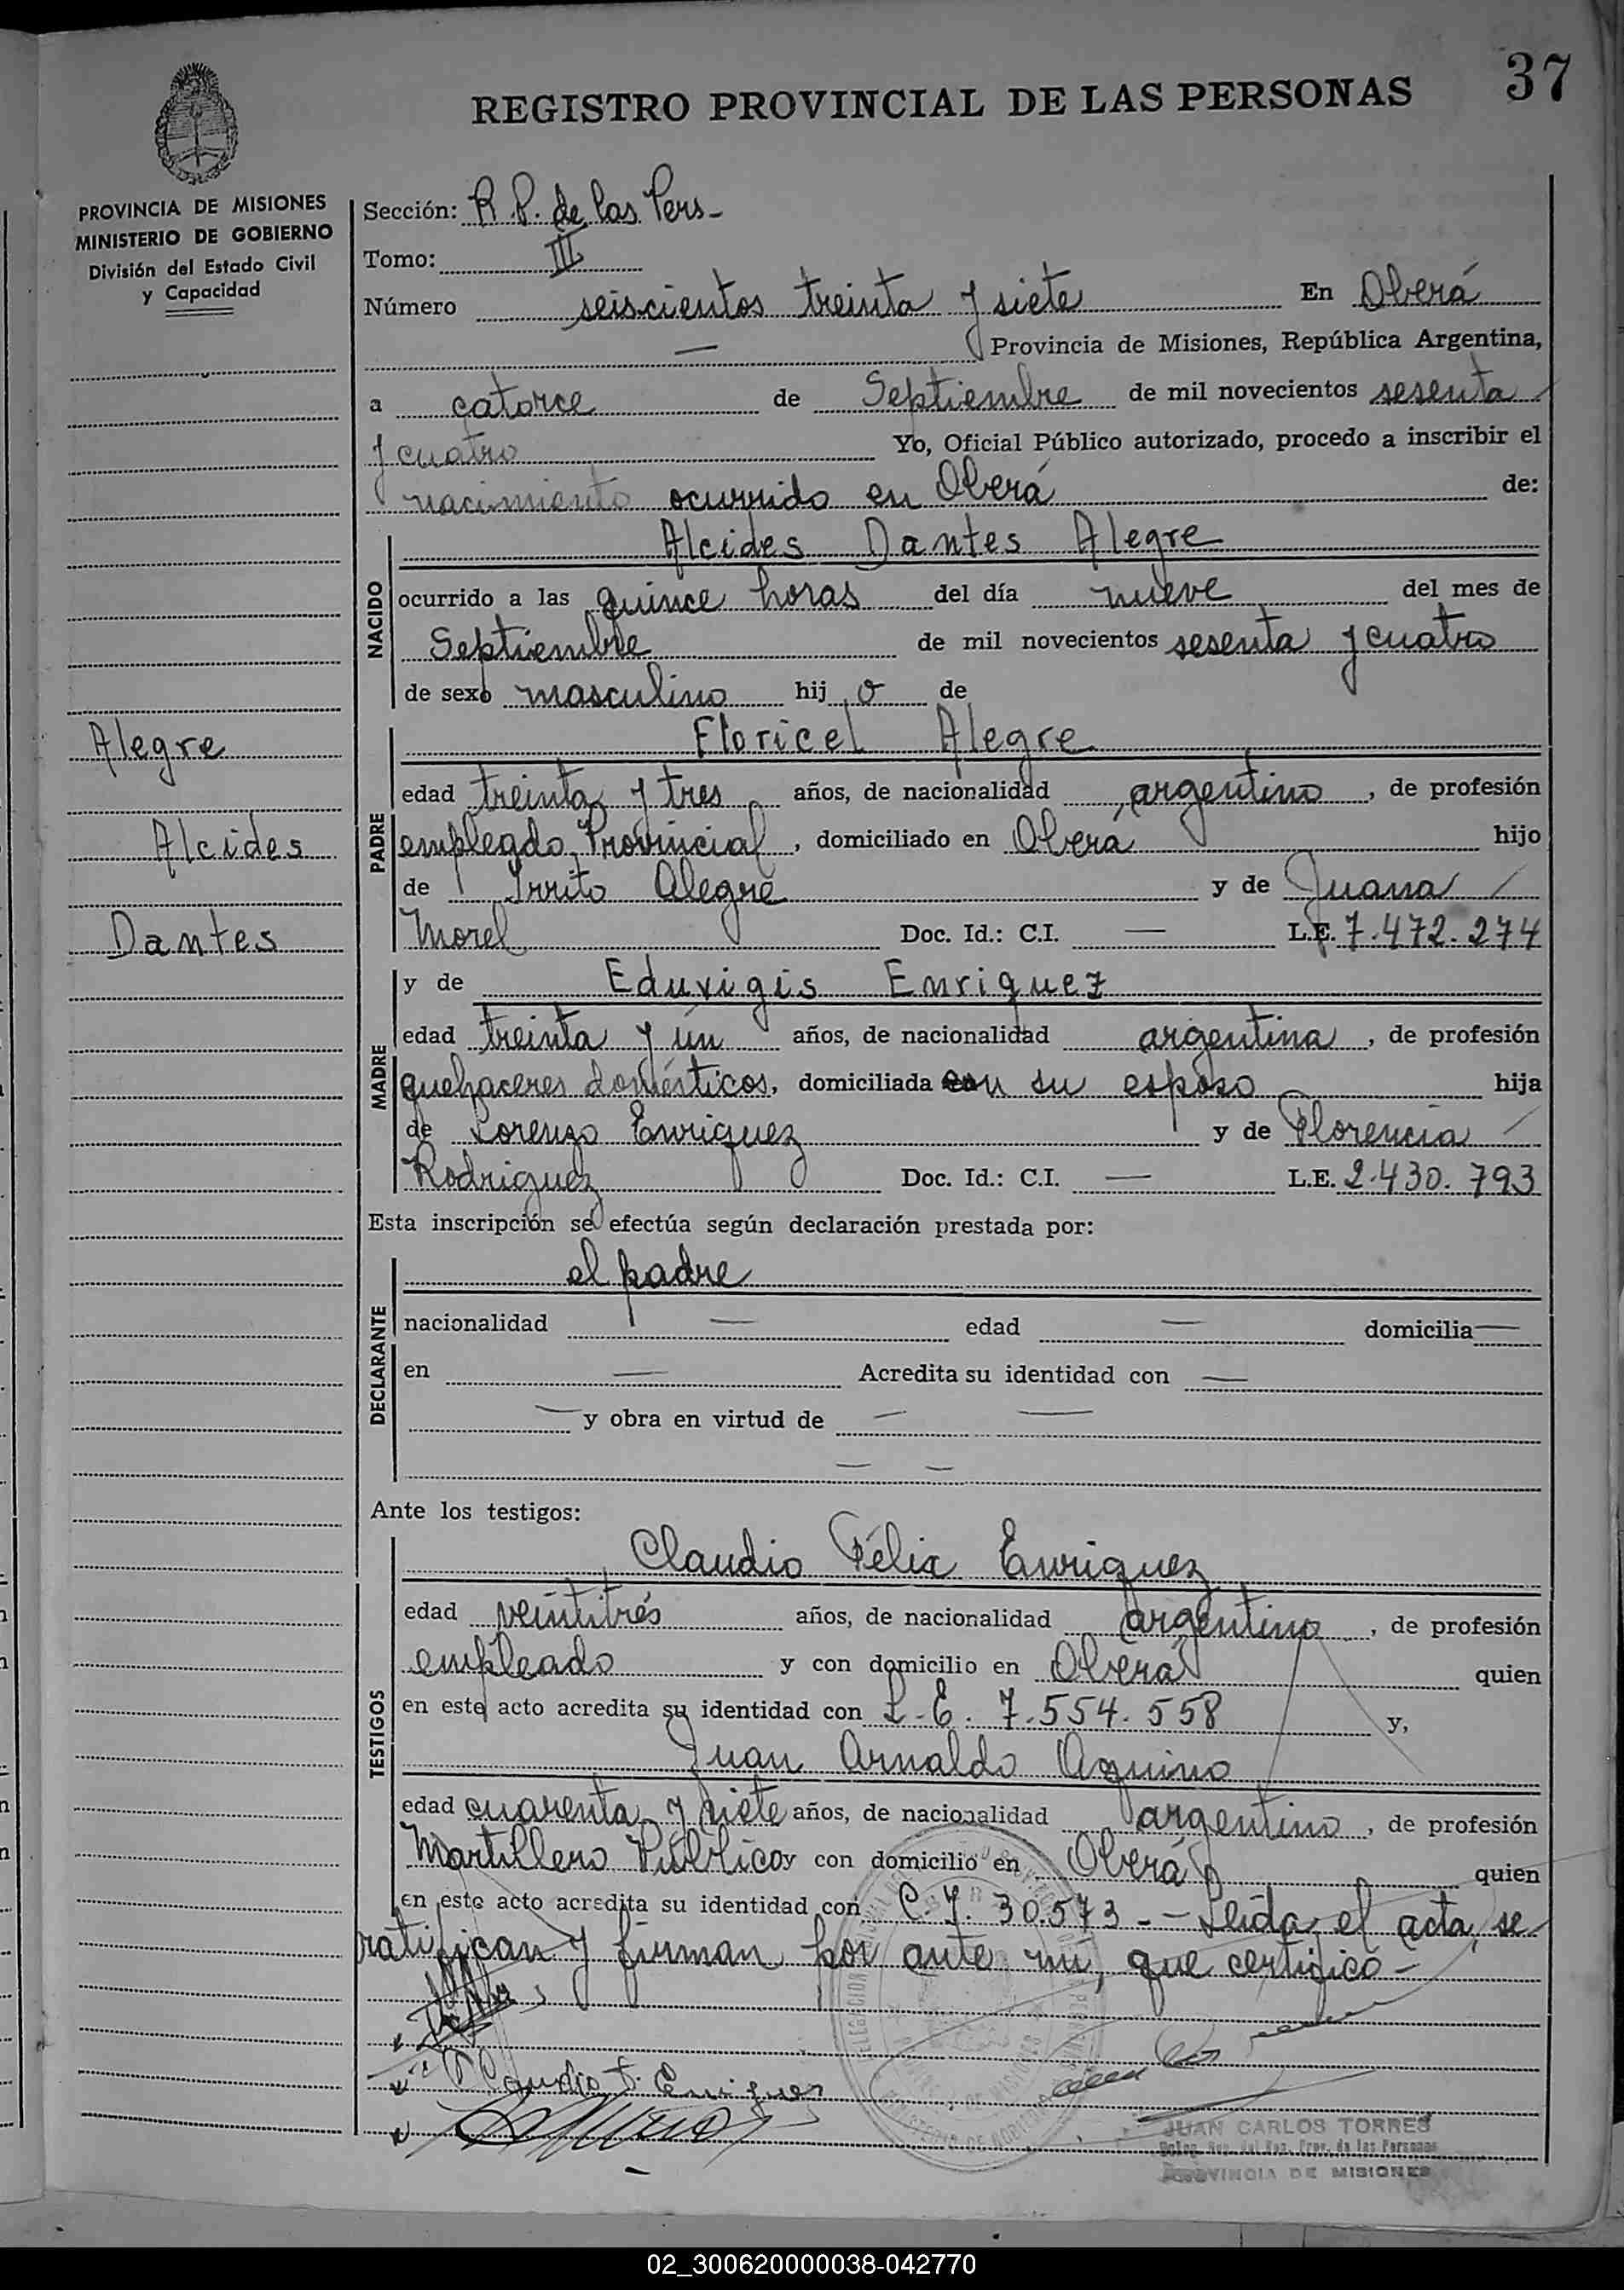 37
REGISTRO PROVINCIAL DE LAS PERSONAS
PROVINCIA DE MISIONES
MINISTERIO DE GOBIERNO
División del Estado Civil
y Capacidad
Alegre
Alcides
Dantes
Sección: R.P. de las Pers-
Tomo: III
Número seiscientos treinta y siete En Oberá
— Provincia de Misiones, República Argentina,
a catorce de Septiembre de mil novecientos sesenta
y cuatro Yo, Oficial Público autorizado, procedo a inscribir el
nacimiento ocurrido en Oberá de:
NACIDO
Alcides Dantes Alegre
ocurrido a las quince horas del día nueve del mes de
Septiembre de mil novecientos sesenta y cuatro
de sexo masculino hij o de
PADRE
Floricel Alegre
edad treinta y tres años, de nacionalidad argentino, de profesión
empleado Provincial, domiciliado en Oberá hijo
de Irrito Alegre y de Juana
Morel Doc. Id.: C.I. — L.E. 7.472.274
MADRE
y de Eduvigis Enriquez
edad treinta y ún años, de nacionalidad argentina, de profesión
quehaceres domésticos, domiciliada con su esposo hija
de Lorenzo Enriquez y de Florencia
Rodriguez Doc. Id.: C.I. — L.E. 2.430.793
Esta inscripción se efectúa según declaración prestada por:
DECLARANTE
el padre
nacionalidad — edad — domicilia —
en — Acredita su identidad con —
— y obra en virtud de — —
— —
Ante los testigos:
TESTIGOS
Claudio Félix Enriquez
edad veintitrés años, de nacionalidad argentino, de profesión
empleado y con domicilio en Oberá quien
en este acto acredita su identidad con L.E. 7.554.558 y,
Juan Arnaldo Aquino
edad cuarenta y siete años, de nacionalidad argentino, de profesión
Martillero Público y con domicilio en Oberá quien
en este acto acredita su identidad con C.I. 30.573 -- Leida el acta, se
ratifican y firman por ante mí, que certifico-
Claudio F. Enriquez
JUAN CARLOS TORRES
PROVINCIA DE MISIONES
02_300620000038-042770